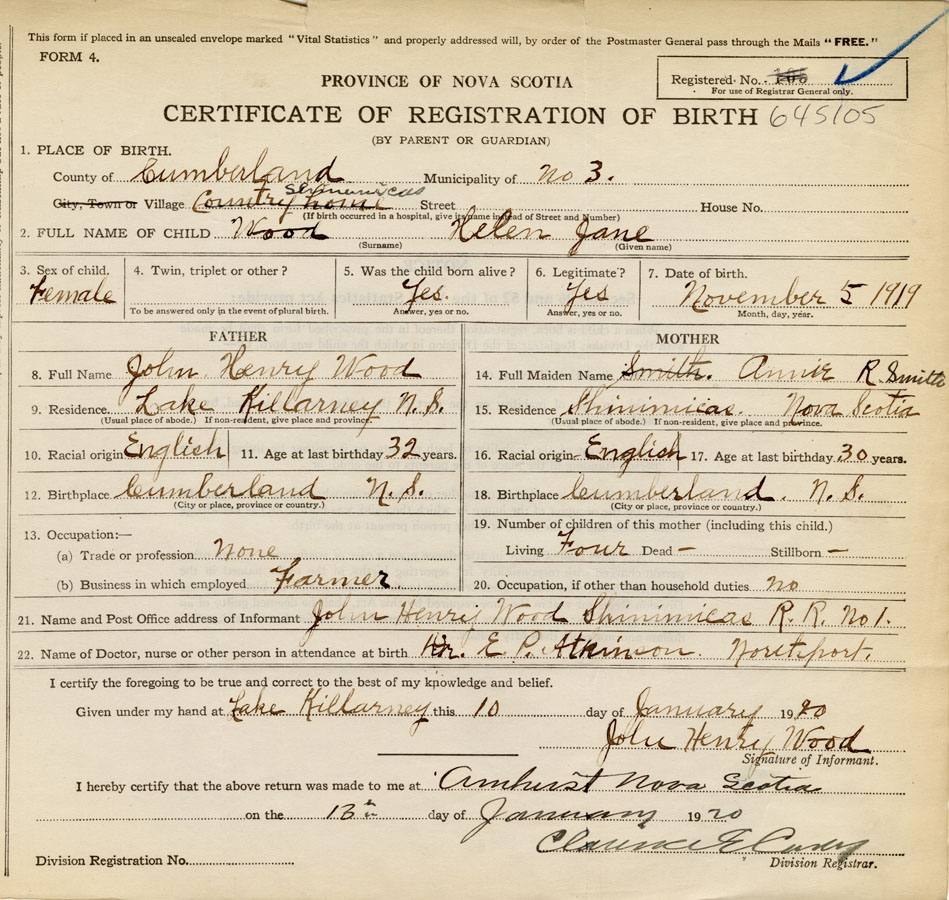 This form if placed in an unsealed envelope marked "Vital Statistics" and properly addressed will, by order of the Postmaster General pass through the Mails "FREE."
FORM 4.
PROVINCE OF NOVA SCOTIA
Registered No.
For use of Registrar General only.
CERTIFICATE OF REGISTRATION OF BIRTH 645105
(BY PARENT OR GUARDIAN)
1. PLACE OF BIRTH.
County of Cumberland Municipality of No 3.
City, Town or Village Country home Shinimicas Street House No.
(If birth occurred in a hospital, give its name instead of Street and Number)
2. FULL NAME OF CHILD Wood Helen Jane
(Surname) (Given name)
3. Sex of child. 4. Twin, triplet or other? 5. Was the child born alive? 6. Legitimate? 7. Date of birth.
Female Yes. Yes November 5 1919
To be answered only in the event of plural birth. Answer, yes or no. Answer, yes or no. Month, day, year.
FATHER MOTHER
8. Full Name John Henry Wood 14. Full Maiden Name Smith. Annie R. Smith
9. Residence Lake Killarney N.S. 15. Residence Shinimicas. Nova Scotia
(Usual place of abode.) If non-resident, give place and province. (Usual place of abode.) If non-resident, give place and province.
10. Racial origin English 11. Age at last birthday 32 years. 16. Racial origin English 17. Age at last birthday 30 years.
12. Birthplace Cumberland N.S. 18. Birthplace Cumberland. N.S.
(City or place, province or country.) (City or place, province or country.)
13. Occupation:— 19. Number of children of this mother (including this child.)
(a) Trade or profession None Living Four Dead – Stillborn –
(b) Business in which employed Farmer 20. Occupation, if other than household duties no
21. Name and Post Office address of Informant John Henry Wood Shinimicas R.R. No 1.
22. Name of Doctor, nurse or other person in attendance at birth Dr. E. P. Atkinson. Northport.
I certify the foregoing to be true and correct to the best of my knowledge and belief.
Given under my hand at Lake Killarney this 10 day of January 1920
John Henry Wood
Signature of Informant.
I hereby certify that the above return was made to me at Amhurst Nova Scotia
on the 13th day of January 1920
Clarence E
Division Registration No. Division Registrar.